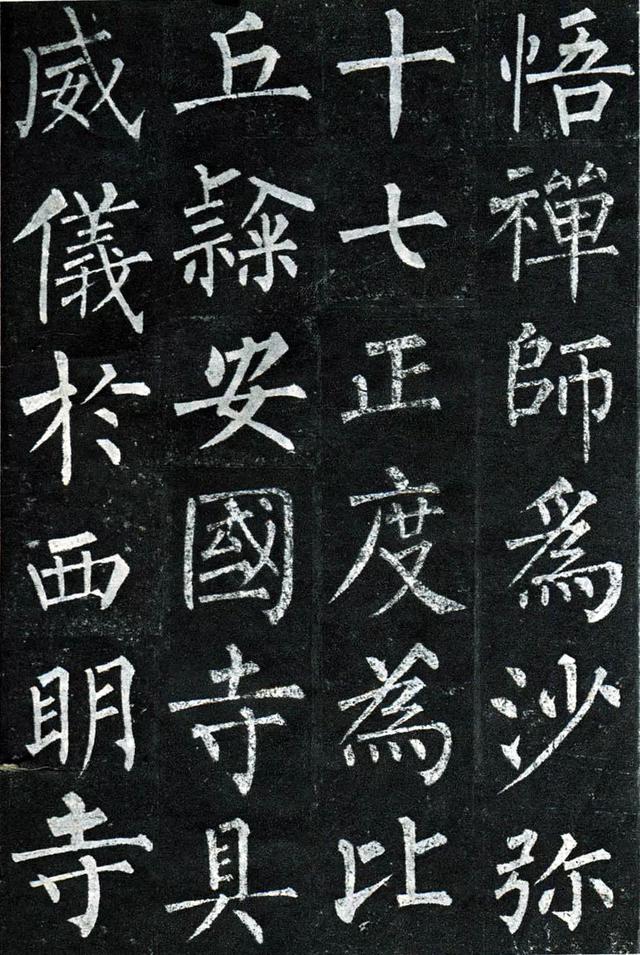 悟禪師爲沙弥
十七正度為比
丘隸安國寺具
威儀於西明寺